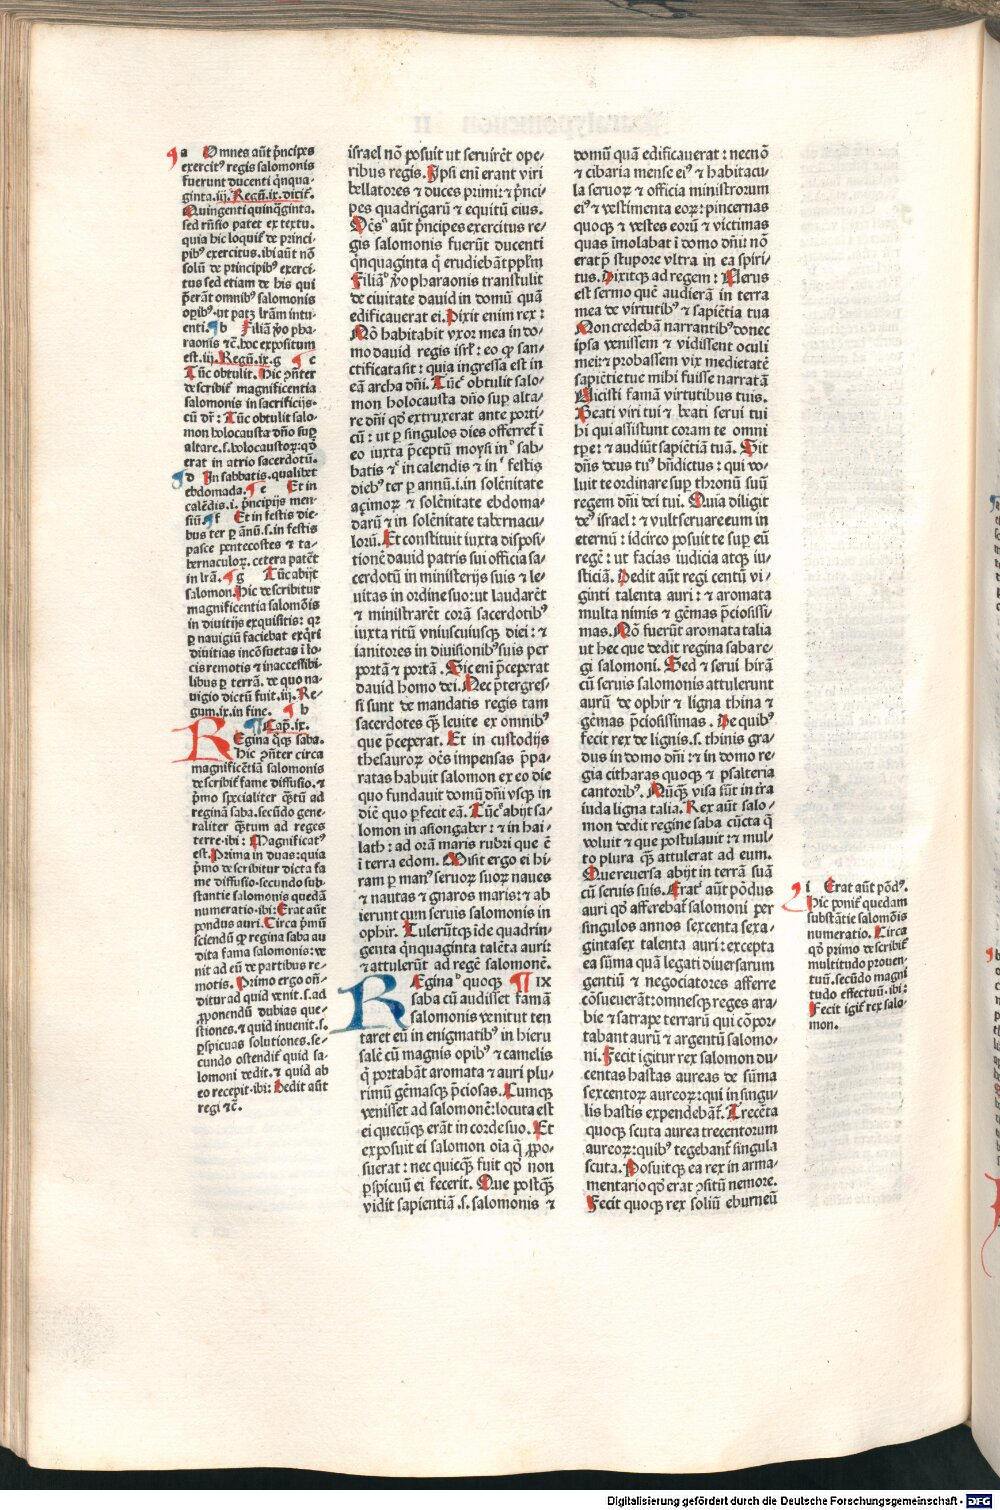 a Omnes aūt p̄ncipes
exercitꝰ regis salomonis
fuerunt ducenti q̄nqua-
ginta.iij. Regū.ix. dicit̄.
Quingenti quinq̄ginta.
sed rn̄sio patet ex textu.
quia hic loquit̄ de princi-
pibꝰ exercitus. ibi aūt nō
solū de principibꝰ exerci-
tus sed etiam de his qui
p̄erāt omnibꝰ salomonis
opibꝰ. ut patꝫ lr̄am intu-
enti. b Filiā ꝟo pha-
raonis ⁊c̄. hoc expositum
est. iij. Regū.ix.g c
Tūc obtulit. Hic ↄn̄ter
describit̄ magnificentia
salomonis in sacrificijs.
cū dr̄: Tūc obtulit salo
mon holocausta dn̄o suꝑ
altare.s.holocaustoꝝ: qd̄
erat in atrio sacerdotū.
d In sabbatis. qualibet
ebdomada. e Et in
calēdis.i.p̄ncipijs men-
siū. f Et in festis die-
bus ter ꝑ annū.s.in festis
pasce pentecostes ⁊ ta-
bernaculoꝝ. cetera patēt
in lr̄a. g Tūc abijt
salomon. Hic describitur
magnificentia salomōis
in diuitijs exquisitis: qꝛ
ꝑ nauigiū faciebat exq̄ri
diuitias incōsuetas ī lo-
cis remotis ⁊ inaccessibi-
libus ꝑ terrā. de quo na-
uigio dictū fuit. iij. Re-
gum.ix.in fine. h
Cap̄.ix.
REgina q̄qꝫ saba.
Hic ↄn̄ter circa
magnificētiā salomonis
describit̄ fame diffusio. ⁊
p̄mo specialiter q̄ꝫtū ad
reginā saba. secūdo gene-
raliter q̄ꝫtum ad reges
terre. ibi: Magnificatꝰ
est. Prima in duas: quia
p̄mo describitur dicta fa
me diffusio. secundo sub-
stantie salomonis quedā
numeratio. ibi: Erat aūt
pondus auri. Circa p̄mū
sciendū ꝙ regina saba au
dita fama salomonis: ve
nit ad eū de partibus re-
motis. Primo ergo oñ-
ditur ad quid venit. s. ad
ꝓponendū dubias que-
stiones. ⁊ quid inuenit. s.
ꝑspicuas solutiones. se-
cundo ostendit̄ quid sa-
lomoni dedit. ⁊ quid ab
eo recepit. ibi: Dedit aūt
regi ⁊c̄.
israel nō posuit ut seruirēt ope-
ribus regis. Ipsi eni erant viri
bellatores ⁊ duces primi: ⁊ p̄nci-
pes quadrigarū ⁊ equitū eius.
Oēs aūt p̄ncipes exercitus re-
gis salomonis fuerūt ducenti
q̄nquaginta q̄ erudiebāt ppl̄m
Filiā ꝟo pharaonis transtulit
de ciuitate dauid in domū quā
edificauerat ei. Dixit enim rex:
Nō habitabit vxor mea in do-
mo dauid regis isrl̄: eo ꝙ san-
ctificata sit: quia ingressa est in
eā archa dn̄i. Tūc obtulit salo-
mon holocausta dn̄o suꝑ alta-
re dn̄i qd̄ extruxerat ante porti-
cū: ut ꝑ singulos dies offerret ī
eo iuxta p̄ceptū moysi in sab-
batis ⁊ in calendis ⁊ in festis
diebꝰ ter ꝑ annū.i.in solēnitate
aꝫimoꝝ ⁊ solēnitate ebdoma-
darū ⁊ in solēnitate tabernacu-
lorū. Et constituit iuxta disposi-
tionē dauid patris sui officia sa-
cerdotū in ministerijs suis ⁊ le-
uitas in ordine suo: ut laudarēt
⁊ ministrarēt corā sacerdotibꝰ
iuxta ritū vniuscuiusqꝫ diei: ⁊
ianitores in diuisionibꝰ suis per
portā ⁊ portā. Sic eni p̄ceperat
dauid homo dei. Nec p̄tergres-
si sunt de mandatis regis tam
sacerdotes q̄ꝫ leuite ex omnibꝰ
que p̄ceperat. Et in custodijs
thesauroꝝ oēs impensas p̄pa-
ratas habuit salomon ex eo die
quo fundauit domū dn̄i vsqꝫ in
diē quo ꝑfecit eā. Tūc abijt sa-
lomon in asiongaber: ⁊ in hai-
lath: ad orā maris rubri que ē
ī terra edom. Misit ergo ei hi-
ram ꝑ manꝰ seruoꝝ suoꝝ naues
⁊ nautas ⁊ gnaros maris: ⁊ ab
ierunt cum seruis salomonis in
ophir. Tulerūtqꝫ ide quadrin-
genta q̄nquaginta talēta auri:
⁊ attulerūt ad regē salomonē.
REgina quoqꝫ IX
saba cū audisset famā
salomonis venitut ten
taret eū in enigmatibꝰ in hieru
salē cū magnis opibꝰ ⁊ camelis
q̄ portabāt aromata ⁊ auri plu-
rimū gēmasqꝫ p̄ciosas. Cumqꝫ
venisset ad salomonē: locuta est
ei quecūqꝫ erāt in corde suo. Et
exposuit ei salomon oīa q̄ ꝓpo-
suerat: nec quicq̄ꝫ fuit qd̄ non
ꝑspicuū ei fecerit. Que postq̄ꝫ
vidit sapientiā .s. salomonis ⁊
domū quā edificauerat: necnō
⁊ cibaria mense eiꝰ ⁊ habitacu-
la seruoꝝ ⁊ officia ministrorum
eiꝰ ⁊ vestimenta eoꝝ: pincernas
quoqꝫ ⁊ vestes eorū ⁊ victimas
quas īmolabat ī domo dn̄i: nō
erat p̄ stupore vltra in ea spiri-
tus. Dixitqꝫ ad regem: Verus
est sermo quē audierā in terra
mea de virtutibꝰ ⁊ sapiētia tua
Non credebā narrantibꝰ donec
ipsa venissem ⁊ vidissent oculi
mei: ⁊ probassem vix medietatē
sapiētie tue mihi fuisse narratā
Vicisti famā virtutibus tuis.
Beati viri tui ⁊ beati serui tui
hi qui assistunt coram te omni
tꝑe: ⁊ audiūt sapiētiā tuā. Sit
dn̄s deus tuꝰ bn̄dictus: qui vo-
luit te ordinare suꝑ thronū suū
regem dn̄i dei tui. Quia diligit
deꝰ israel: ⁊ vult seruare eum in
eternū: idcirco posuit te suꝑ eū
regē: ut facias iudicia atqꝫ iu-
sticiā. Dedit aūt regi centū vi-
ginti talenta auri: ⁊ aromata
multa nimis ⁊ gēmas p̄ciosissi-
mas. Nō fuerūt aromata talia
ut hec que dedit regina saba re-
gi salomoni. Sed ⁊ serui hirā
cū seruis salomonis attulerunt
aurū de ophir ⁊ ligna thina ⁊
gēmas p̄ciosissimas. De quibꝰ
fecit rex de lignis.s.thinis gra-
dus in domo dn̄i: ⁊ in domo re-
gia citharas quoqꝫ ⁊ psalteria
cantoribꝰ. Nūqꝫ visa sūt in tr̄a
iuda ligna talia. Rex aūt salo-
mon dedit regine saba cūcta q̄
voluit ⁊ que postulauit: ⁊ mul-
to plura q̄ꝫ attulerat ad eum.
Que reuersa abijt in terrā suā
cū seruis suis. Erat aūt pōdus
auri qd̄ afferebat̄ salomoni per
singulos annos sexcenta sexa-
gintasex talenta auri: excepta
ea sūma quā legati diuersarum
gentiū ⁊ negociatores afferre
cōsueuerāt: omnesqꝫ reges ara-
bie ⁊ satrape terrarū qui cōpor-
tabant aurū ⁊ argentū salomo-
ni. Fecit igitur rex salomon du-
centas hastas aureas de sūma
sexcentoꝝ aureoꝝ: qui in singu-
lis hastis expendebāt̄. Trecēta
quoqꝫ scuta aurea trecentorum
aureoꝝ: quibꝰ tegebant̄ singula
scuta. Posuitqꝫ ea rex in arma-
mentario qd̄ erat ↄsitū nemore.
Fecit quoqꝫ rex soliū eburneū
i Erat aūt pōdꝰ.
Hic ponit̄ quedam
substātie salomōis
numeratio. Circa
qd̄ primo describit̄
multitudo prouen-
tuū. secūdo magni
tudo effectuū. ibi:
Fecit igit̄ rex salo-
mon.
Digitalisierung gefördert durch die Deutsche Forschungsgemeinschaft - DFG